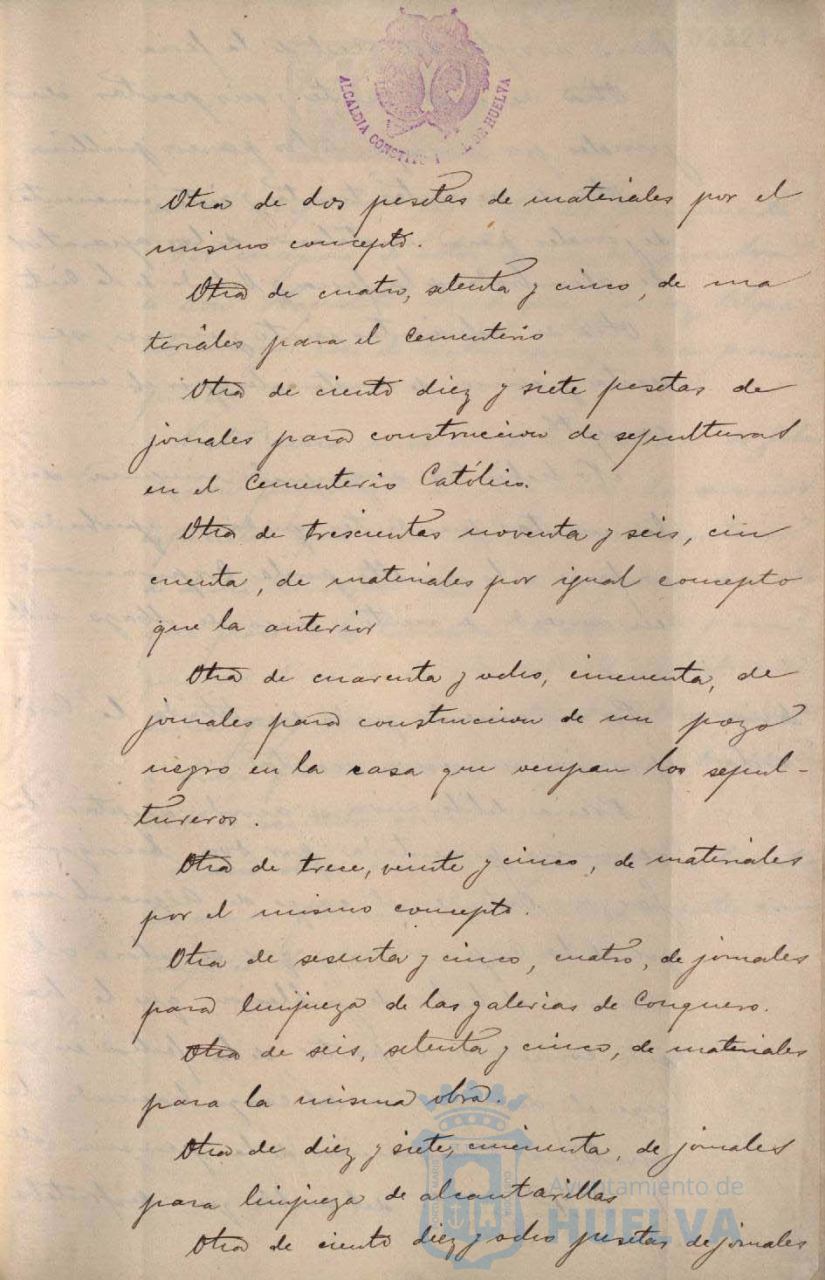 ALCALDIA CONSTITU L DE HUELVA
Otra de dos pesetas de materiales por el
mismo concepto.
Otra de cuatro, setenta y cinco, de ma
teriales para el Cementerio
Otra de ciento diez y siete pesetas de
jornales para construccion de sepulturas
en el Cementerio Católico.
Otra de trescientas noventa y seis, cin
cuenta, de materiales por igual concepto
que la anterior
Otra de cuarenta y ocho, cincuenta, de
jornales para construccion de un pozo
negro en la casa que ocupan los sepul-
tureros.
Otra de trece, veinte y cinco, de materiales
por el mismo concepto.
Otra de sesenta y cinco, cuatro, de jornales
para limpieza de las galerias de Conquero.
Otra de seis, setenta y cinco, de materiales
para la misma obra.
Otra de diez y siete, cincuenta, de jornales
para limpieza de alcantarillas
Otra de ciento diez y ocho pesetas de jornales
Ayuntamiento de
HUELVA